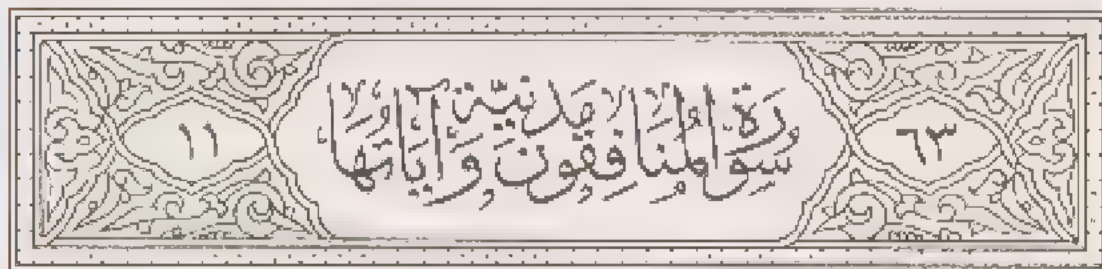 ٦٣
سُورَةُ المُنَافِقُونَ مَدَنِيَّة وَآيَاتُهَا
١١